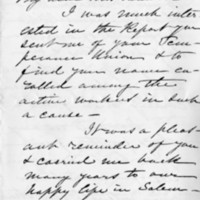 I was much inter
ested in the Report you
sent me of your Tem
perance Union & to
find your name en
rolled among the
active workers in such
a cause —
It was a pleas
ant reminder of you
& carried me back
many years to our
happy life in Salem —